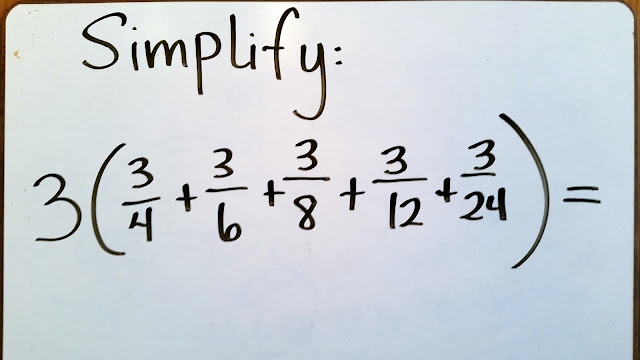 Simplify:
3(3/4 + 3/6 + 3/8 + 3/12 + 3/24) =